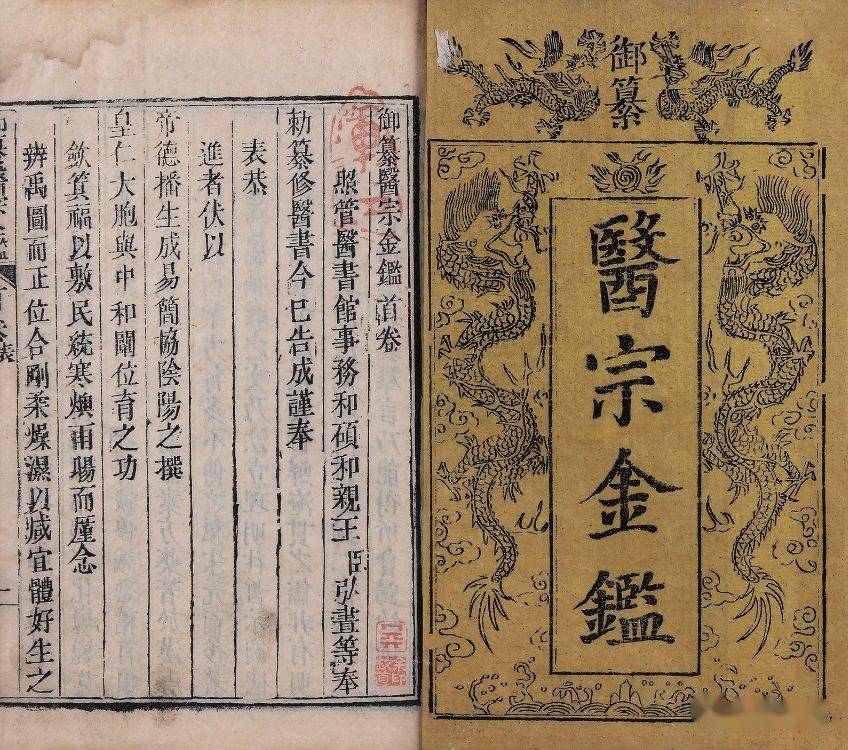 御纂
醫宗金鑑
御纂醫宗金鑑首卷
照管醫書館事務和碩和親王臣弘晝等奉
勅纂修醫書今已告成謹奉
表恭
進者伏以
帝德播生成易簡協陰陽之撰
皇仁大胞與中和闡位育之功
歛箕福以敷民統寒燠雨暘而厪念
辨禹圖而正位合剛柔燥濕以咸宜體好生之